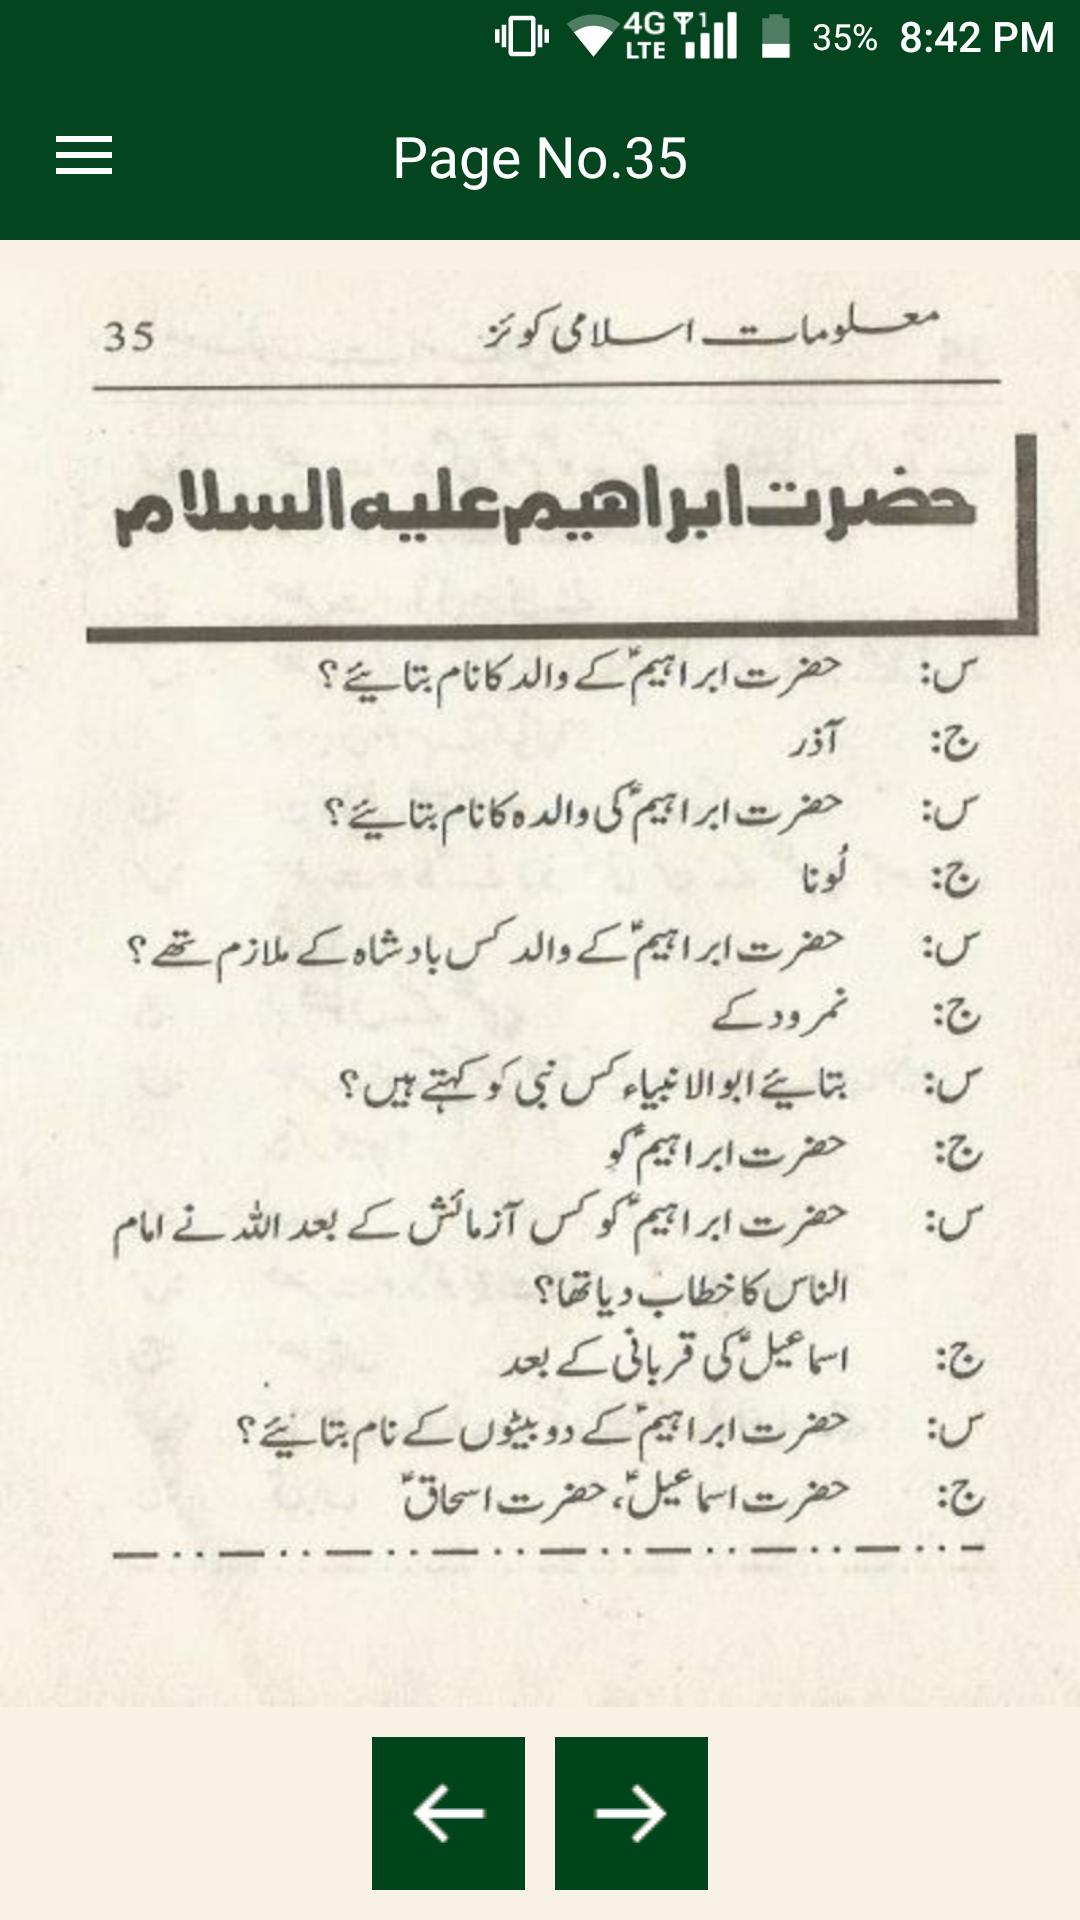 4G LTE 1 35% 8:42 PM
Page No.35
معلومات اسلامی کوئز 35
حضرت ابراھیم علیہ السلام
س: حضرت ابراہیمؑ کے والد کا نام بتایئے؟
ج: آذر
س: حضرت ابراہیمؑ کی والدہ کا نام بتایئے؟
ج: لُونا
س: حضرت ابراہیمؑ کے والد کس بادشاہ کے ملازم تھے؟
ج: نمرود کے
س: بتایئے ابوالانبیاء کس نبی کو کہتے ہیں؟
ج: حضرت ابراہیمؑ کو
س: حضرت ابراہیمؑ کو کس آزمائش کے بعد اللہ نے امام
الناس کا خطاب دیا تھا؟
ج: اسماعیلؑ کی قربانی کے بعد
س: حضرت ابراہیمؑ کے دو بیٹوں کے نام بتایئے؟
ج: حضرت اسماعیلؑ، حضرت اسحاقؑ